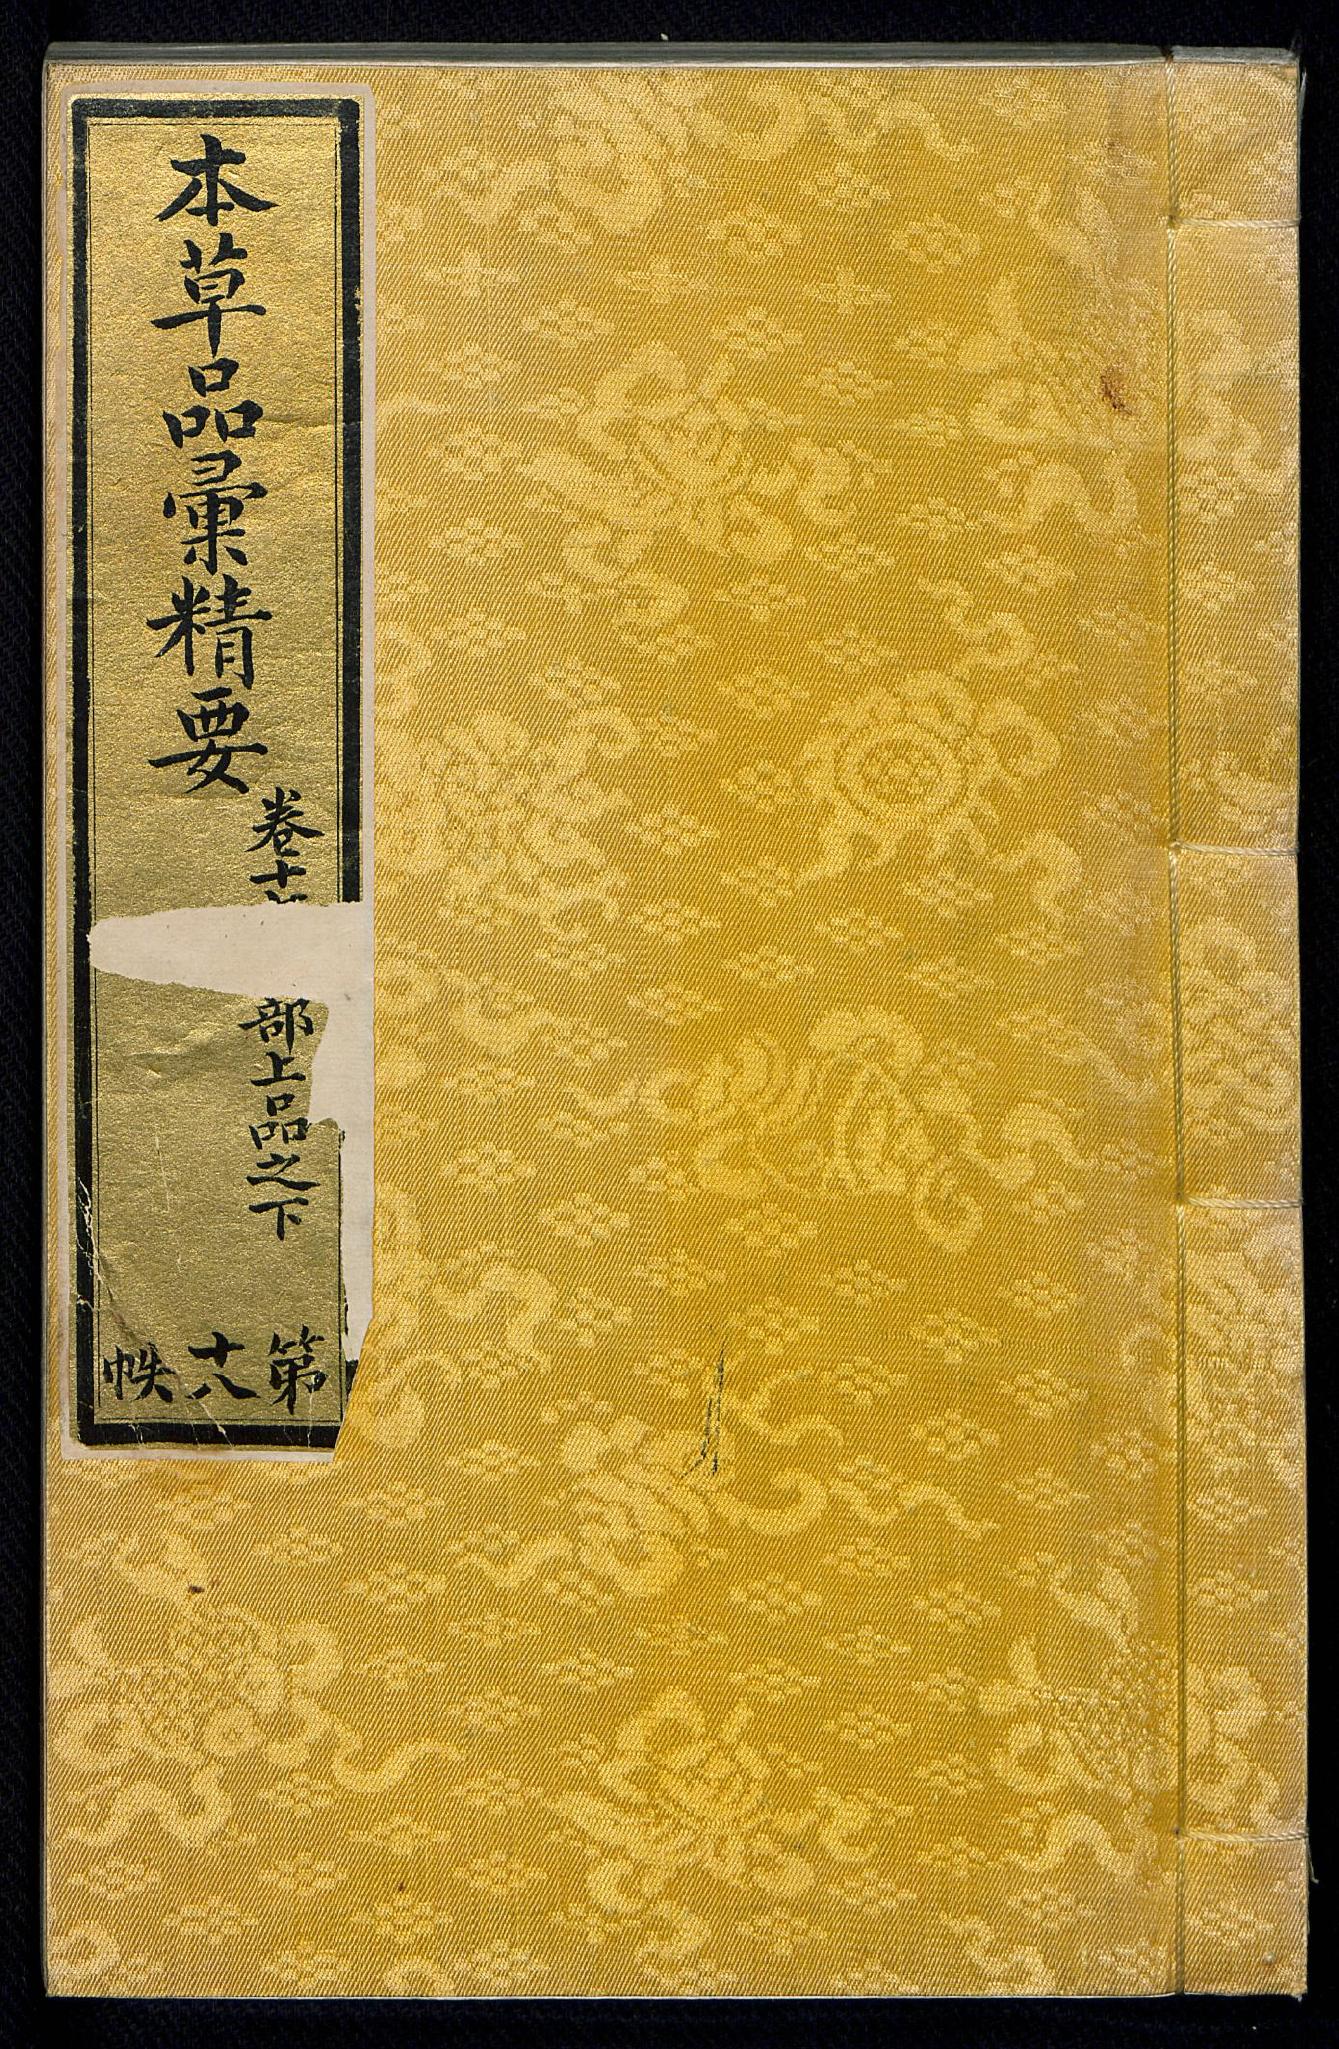 本草品彙精要
卷十
部上品之下
第十八帙